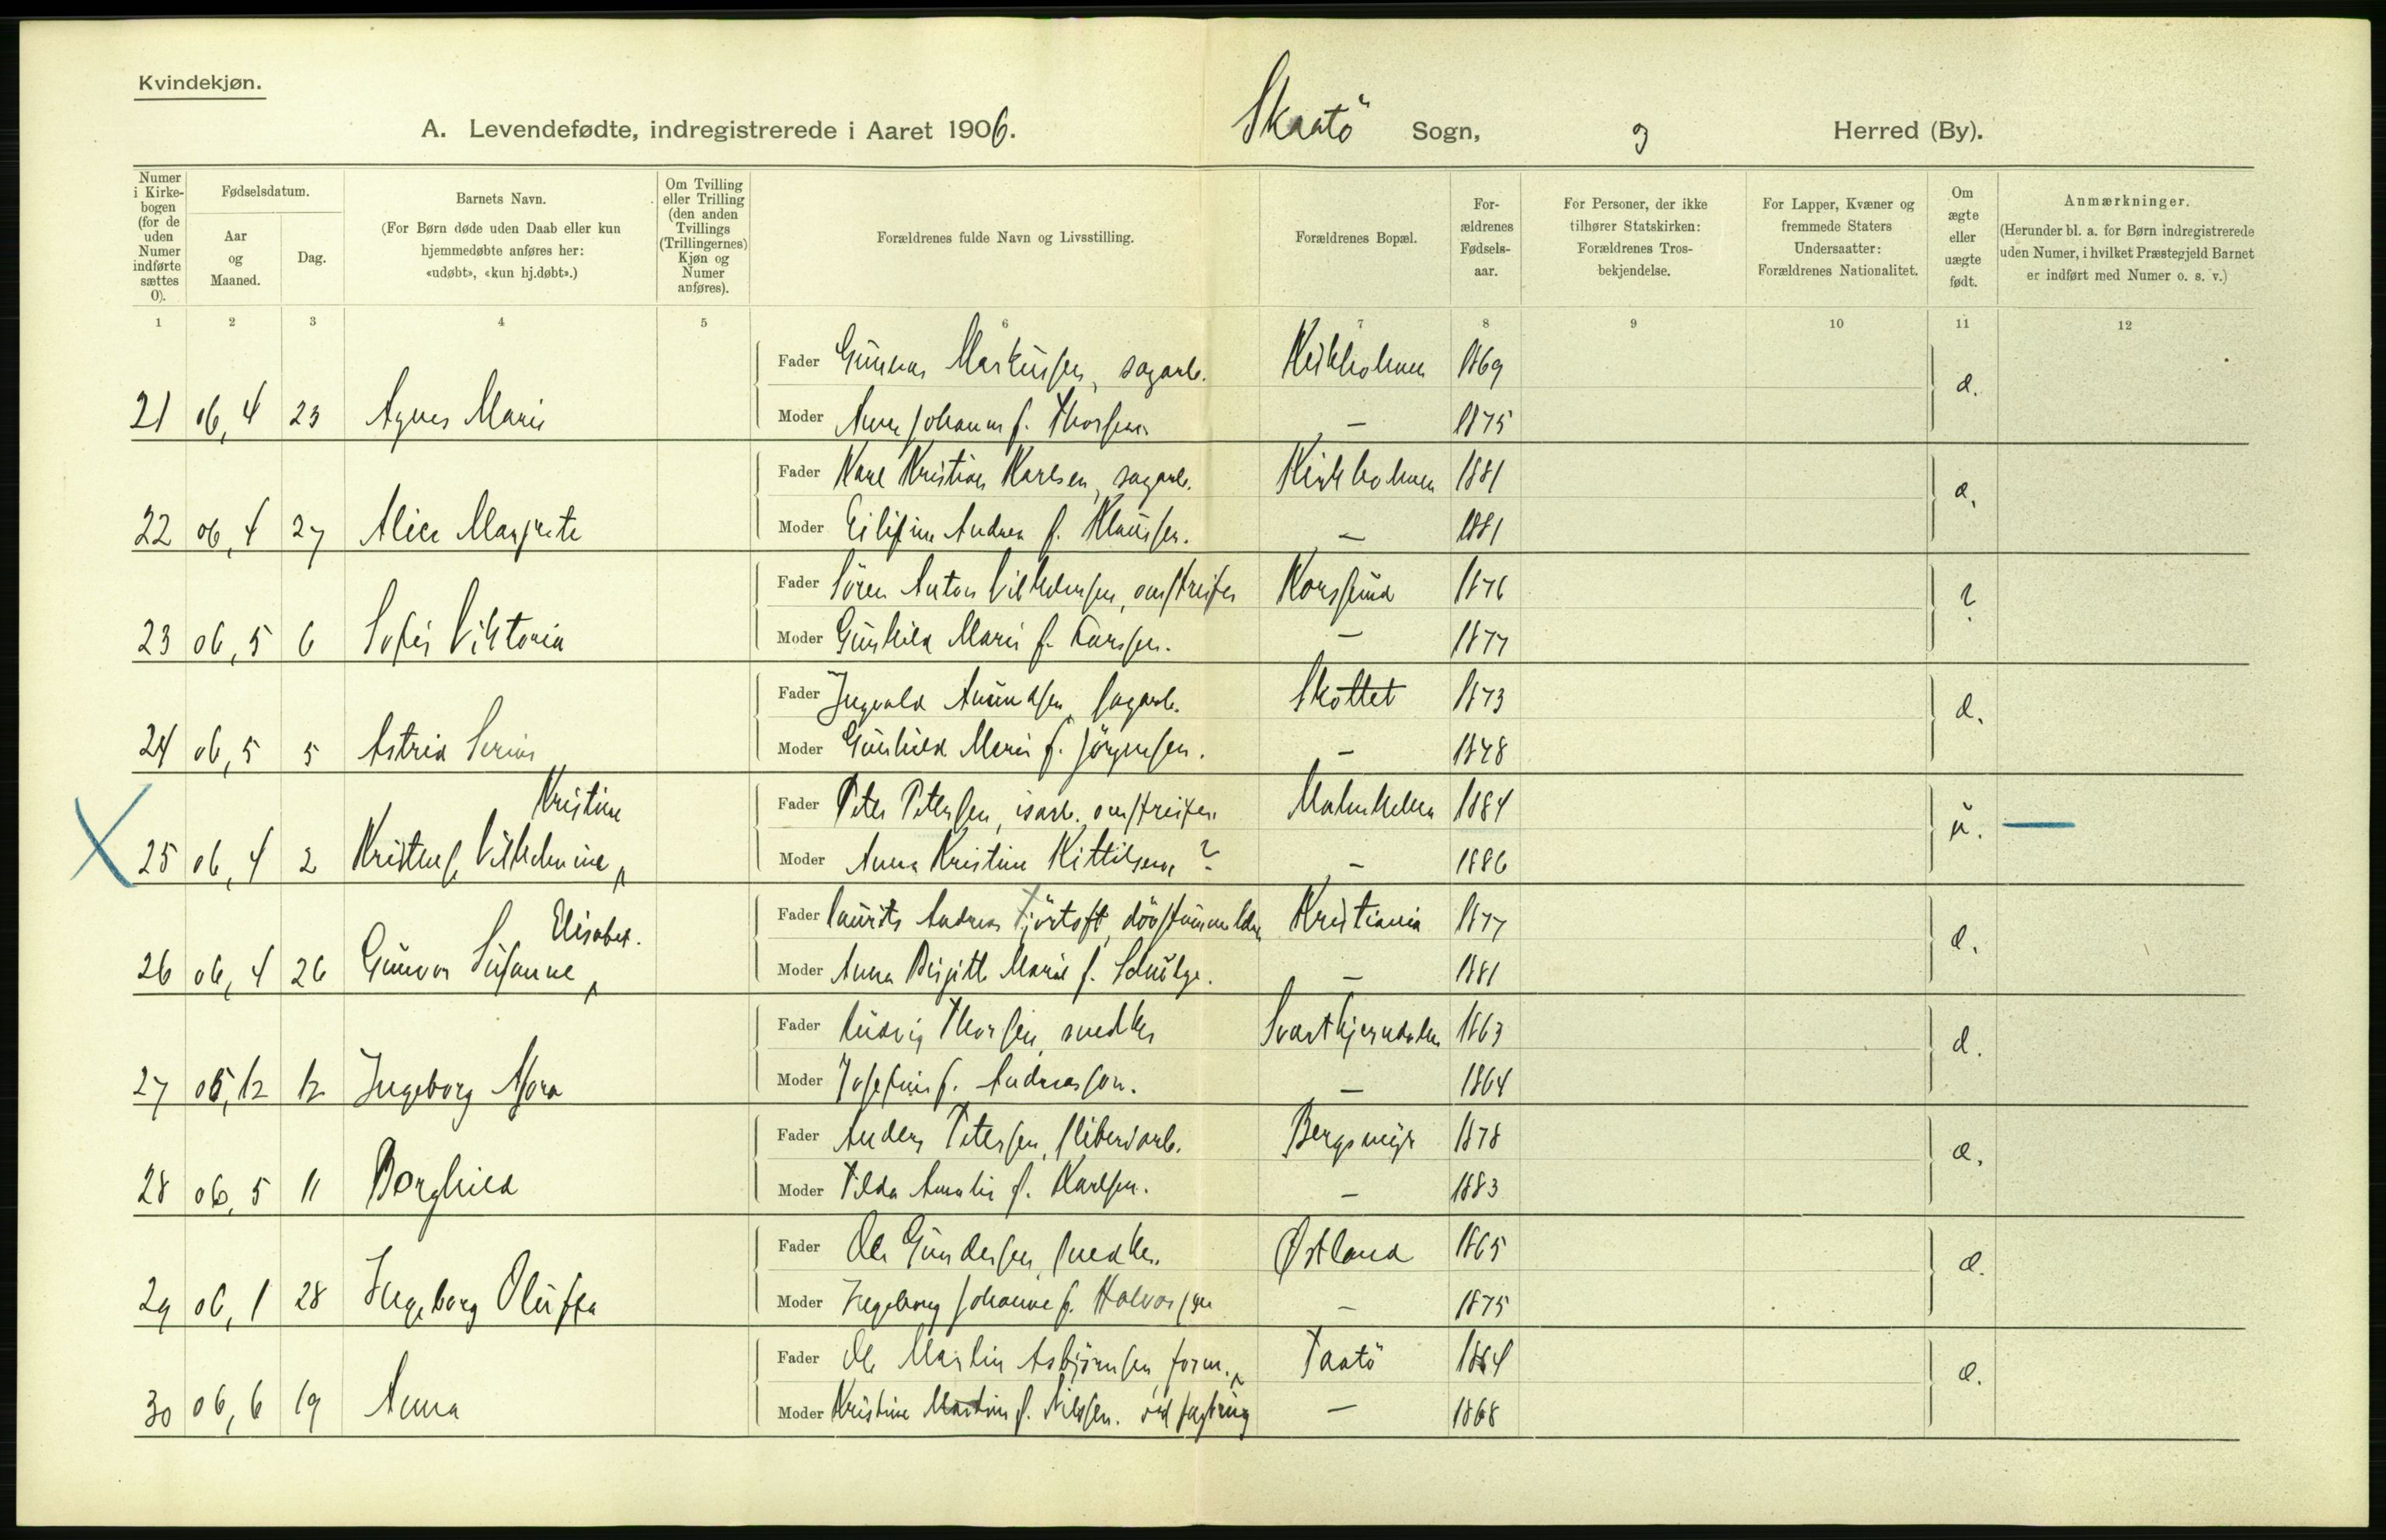 Kvindekjøn.
A. Levendefødte, indregistrerede i Aaret 1906. Skaatö Sogn, Herred (By).
Numer i Kirkebogen (for de uden Numer indførte sættes 0).
Fødselsdatum.
Aar og Maaned.
Dag.
Barnets Navn.
(For Børn døde uden Daab eller kun hjemmedøbte anføres her: «udøbt», «kun hj.døbt».)
Om Tvilling eller Trilling (den anden Tvillings (Trillingernes) Kjøn og Numer anføres).
Forældrenes fulde Navn og Livsstilling.
Forældrenes Bopæl.
For-ældrenes Fødsels-aar.
For Personer, der ikke tilhører Statskirken: Forældrenes Tros-bekjendelse.
For Lapper, Kvæner og fremmede Staters Undersaatter: Forældrenes Nationalitet.
Om ægte eller uægte født.
Anmærkninger.
(Herunder bl. a. for Børn indregistrerede uden Numer, i hvilket Præstegjeld Barnet er indført med Numer o. s. v.)
1 2 3 4 5 6 7 8 9 10 11 12
Fader Gunnar Markussen, sagarb. Kirkholmen 1869
21 06, 4 23 Agnes Marie Moder Anne Johanne f. Thorsen — 1875
Fader Karl Kristian Karlsen, sagarb. Kirkholmen 1881
22 06, 4 27 Alice Margrete Moder Andrea f. Klaussen. — 1881
Fader Sören Anton Vilhelmsen, omstreifer Korssund 1876
23 06, 5 6 Sofie Viktoria Moder Gunhild Marie f. Larssen. — 1877 ?
Fader Ingvald Amundsen, sagarb. Skottet 1873
24 06, 5 5 Astrid Moder Gunhild Marie f. Jörgensen. — 1878
Kristine
Fader Peter Petersen, omstreifer 1884 u. —
25 06, 4 2 Vilhelmine Moder Anna Kristine Kittilsen ? — 1886
Elisabet.
Fader Laurits Andreas Fjörtoft, Kristiania 1877
26 06, 4 26 Gunvor Susanne Moder Anna Birgitte Marie f. — 1881
Fader Ludvig Thorsen, snedker 1863
27 05, 12 12 Ingeborg Moder Josefine f. Andreasson. — 1864
Fader Anders Petersen, sliberiarb. Bergsmyr 1878
28 06, 5 11 Borghild Moder Tilda Amalie f. Karlsen. — 1883
Fader Ole Gundersen, snedker Østland 1865
29 06, 1 28 Ingeborg Oluffa Moder Ingeborg Johanne f. Halvorsen — 1875
Fader Ole Martin Asbjörnsen, form. Taatö 1864
30 06, 6 19 Anna Moder Kristine Martine f. Nilssen. — 1868